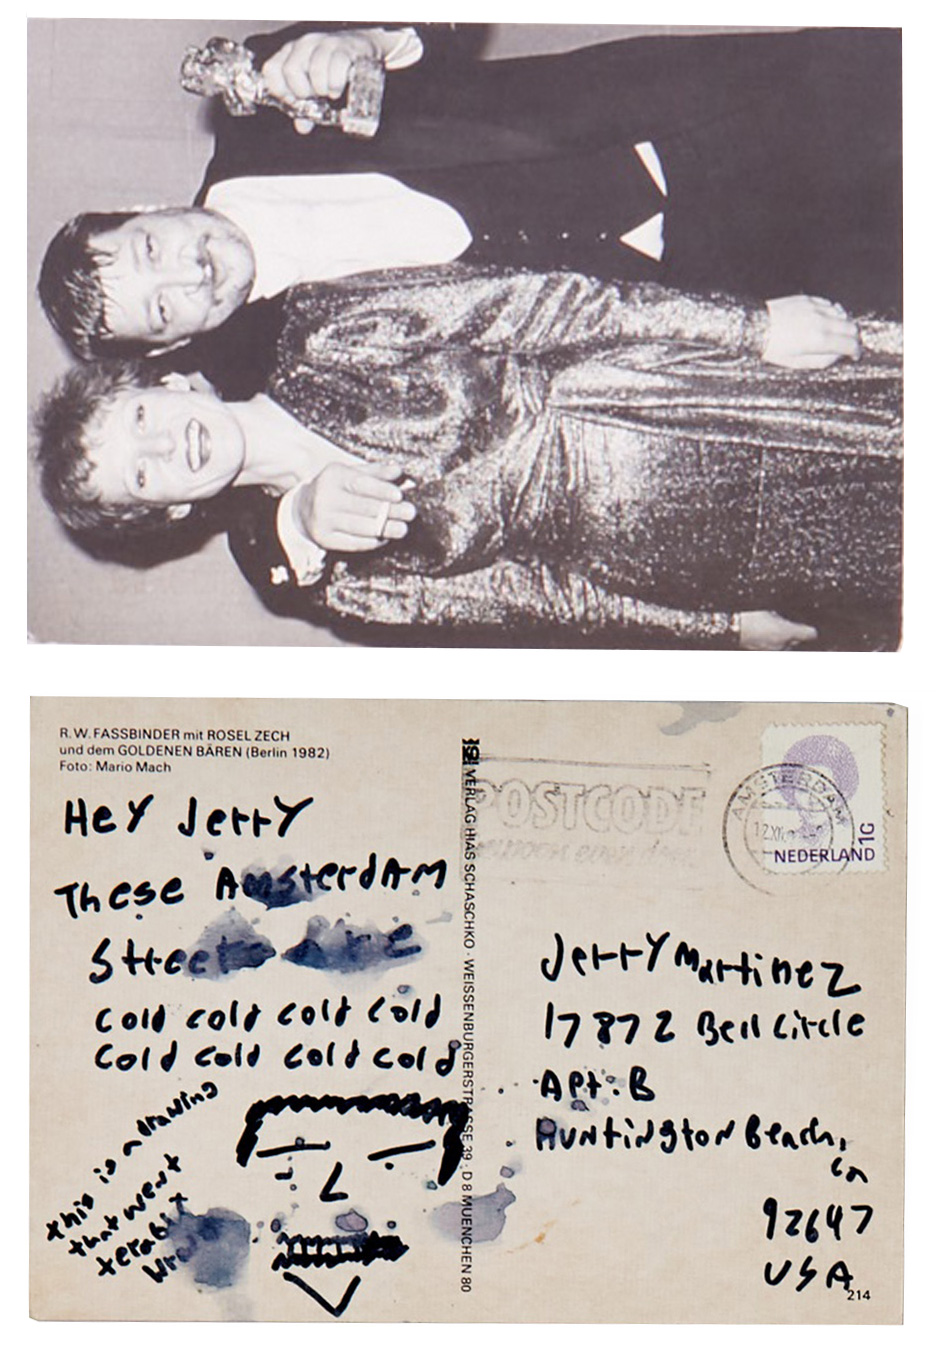 R.W. FASSBINDER mit ROSEL ZECH
und dem GOLDENEN BÄREN (Berlin 1982)
Foto: Mario Mach
Hey Jerry
These Amsterdam
Streets are
cold cold cold cold
Cold cold cold cold
this is a drawing
that went
wrong
VERLAG HIAS SCHASCHKO · WEISSENBURGERSTRASSE 39 · D 8 MUENCHEN 80
POSTCODE
AMSTERDAM
NEDERLAND
1G
Jerry Martinez
17872 Bell Circle
Apt. B
Huntington Beach,
Ca
92647
USA
214